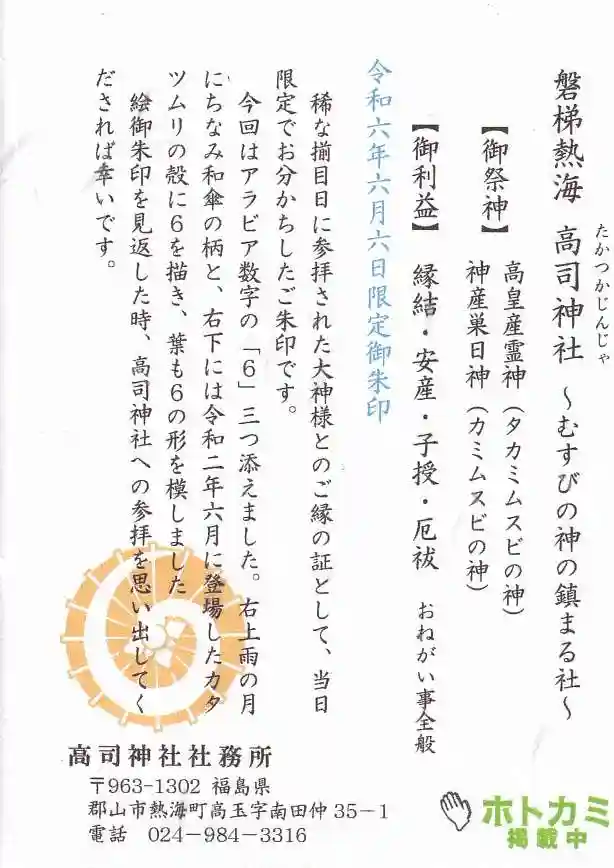 磐梯熱海 高司神社 ～むすびの神の鎮まる社～
たかつかじんじゃ
【御祭神】 高皇産霊神（タカミムスビの神）
神産巣日神（カミムスビの神）
【御利益】 縁結・安産・子授・厄祓 おねがい事全般
令和六年六月六日限定御朱印
稀な揃目日に参拝された大神様とのご縁の証として、当日
限定でお分かちしたご朱印です。
今回はアラビア数字の「６」三つ添えました。右上雨の月
にちなみ和傘の柄と、右下には令和二年六月に登場したカタ
ツムリの殻に６を描き、葉も６の形を模しました
絵御朱印を見返した時、高司神社への参拝を思い出してく
だされば幸いです。
高司神社社務所
〒963-1302 福島県
郡山市熱海町高玉字南田仲35－1
電話 024－984－3316
ホトカミ
掲載中